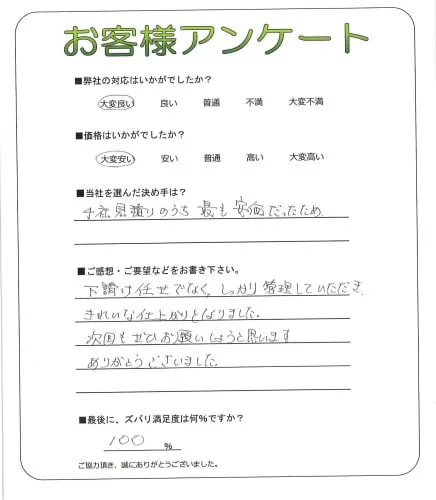 お客様アンケート
■弊社の対応はいかがでしたか？
大変良い 良い 普通 不満 大変不満
■価格はいかがでしたか？
大変安い 安い 普通 高い 大変高い
■当社を選んだ決め手は？
社見積りのうち 最も安価だったため
■ご感想・ご要望などをお書き下さい。
下請け任せでなく、しっかり管理していただき、
きれいな仕上がりとなりました。
次回もぜひお願いしようと思います
ありがとうございました。
■最後に、ズバリ満足度は何％ですか？
100 ％
ご協力頂き、誠にありがとうございました。